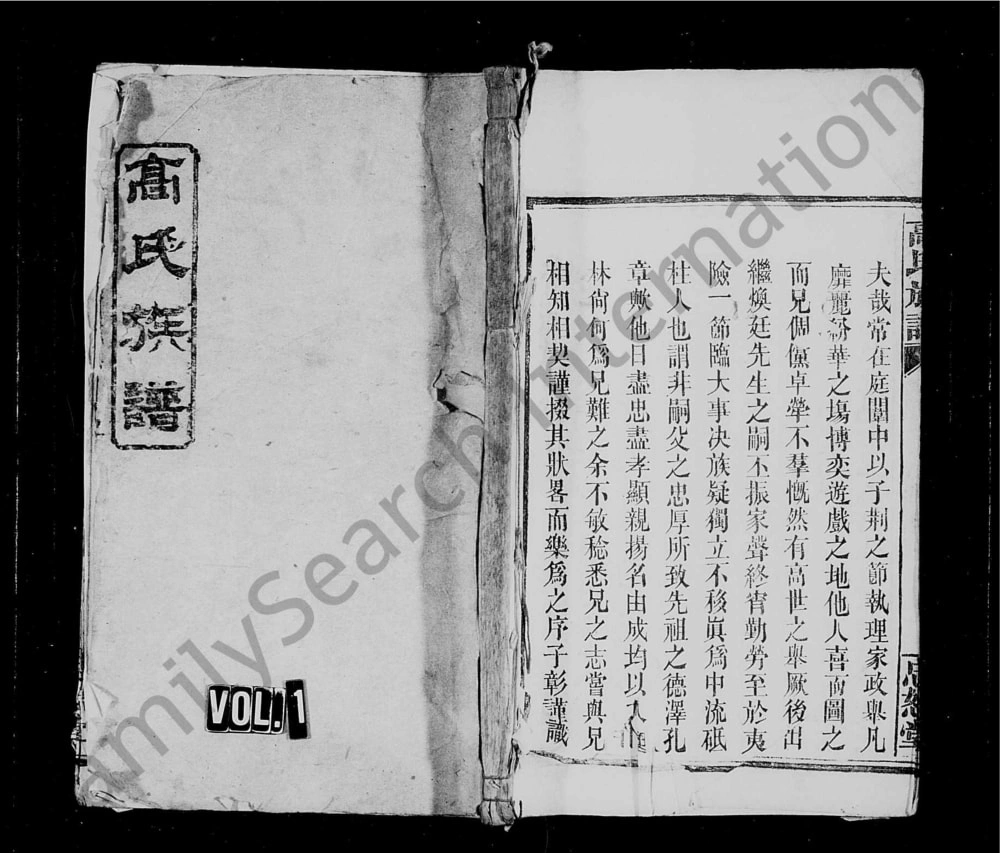 高氏族譜
VOL. 1
高氏族譜
夫哉常在庭闈中以子荆之節執理家政舉凡
靡麗紛華之塲博奕遊戲之地他人喜而圖之
而兄倜儻卓犖不羣慨然有高世之舉厥後出
繼煥廷先生之嗣丕振家聲終寄勤勞至於夷
險一節臨大事決族疑獨立不移眞爲中流砥
柱人也謂非嗣父之忠厚所致先祖之德澤孔
章歟他日盡忠盡孝顯親揚名由成均以入
林尙何爲兄難之余不敏稔悉兄之志嘗與兄
相知相契謹掇其狀畧而樂爲之序子彰謹識
FamilySearch International